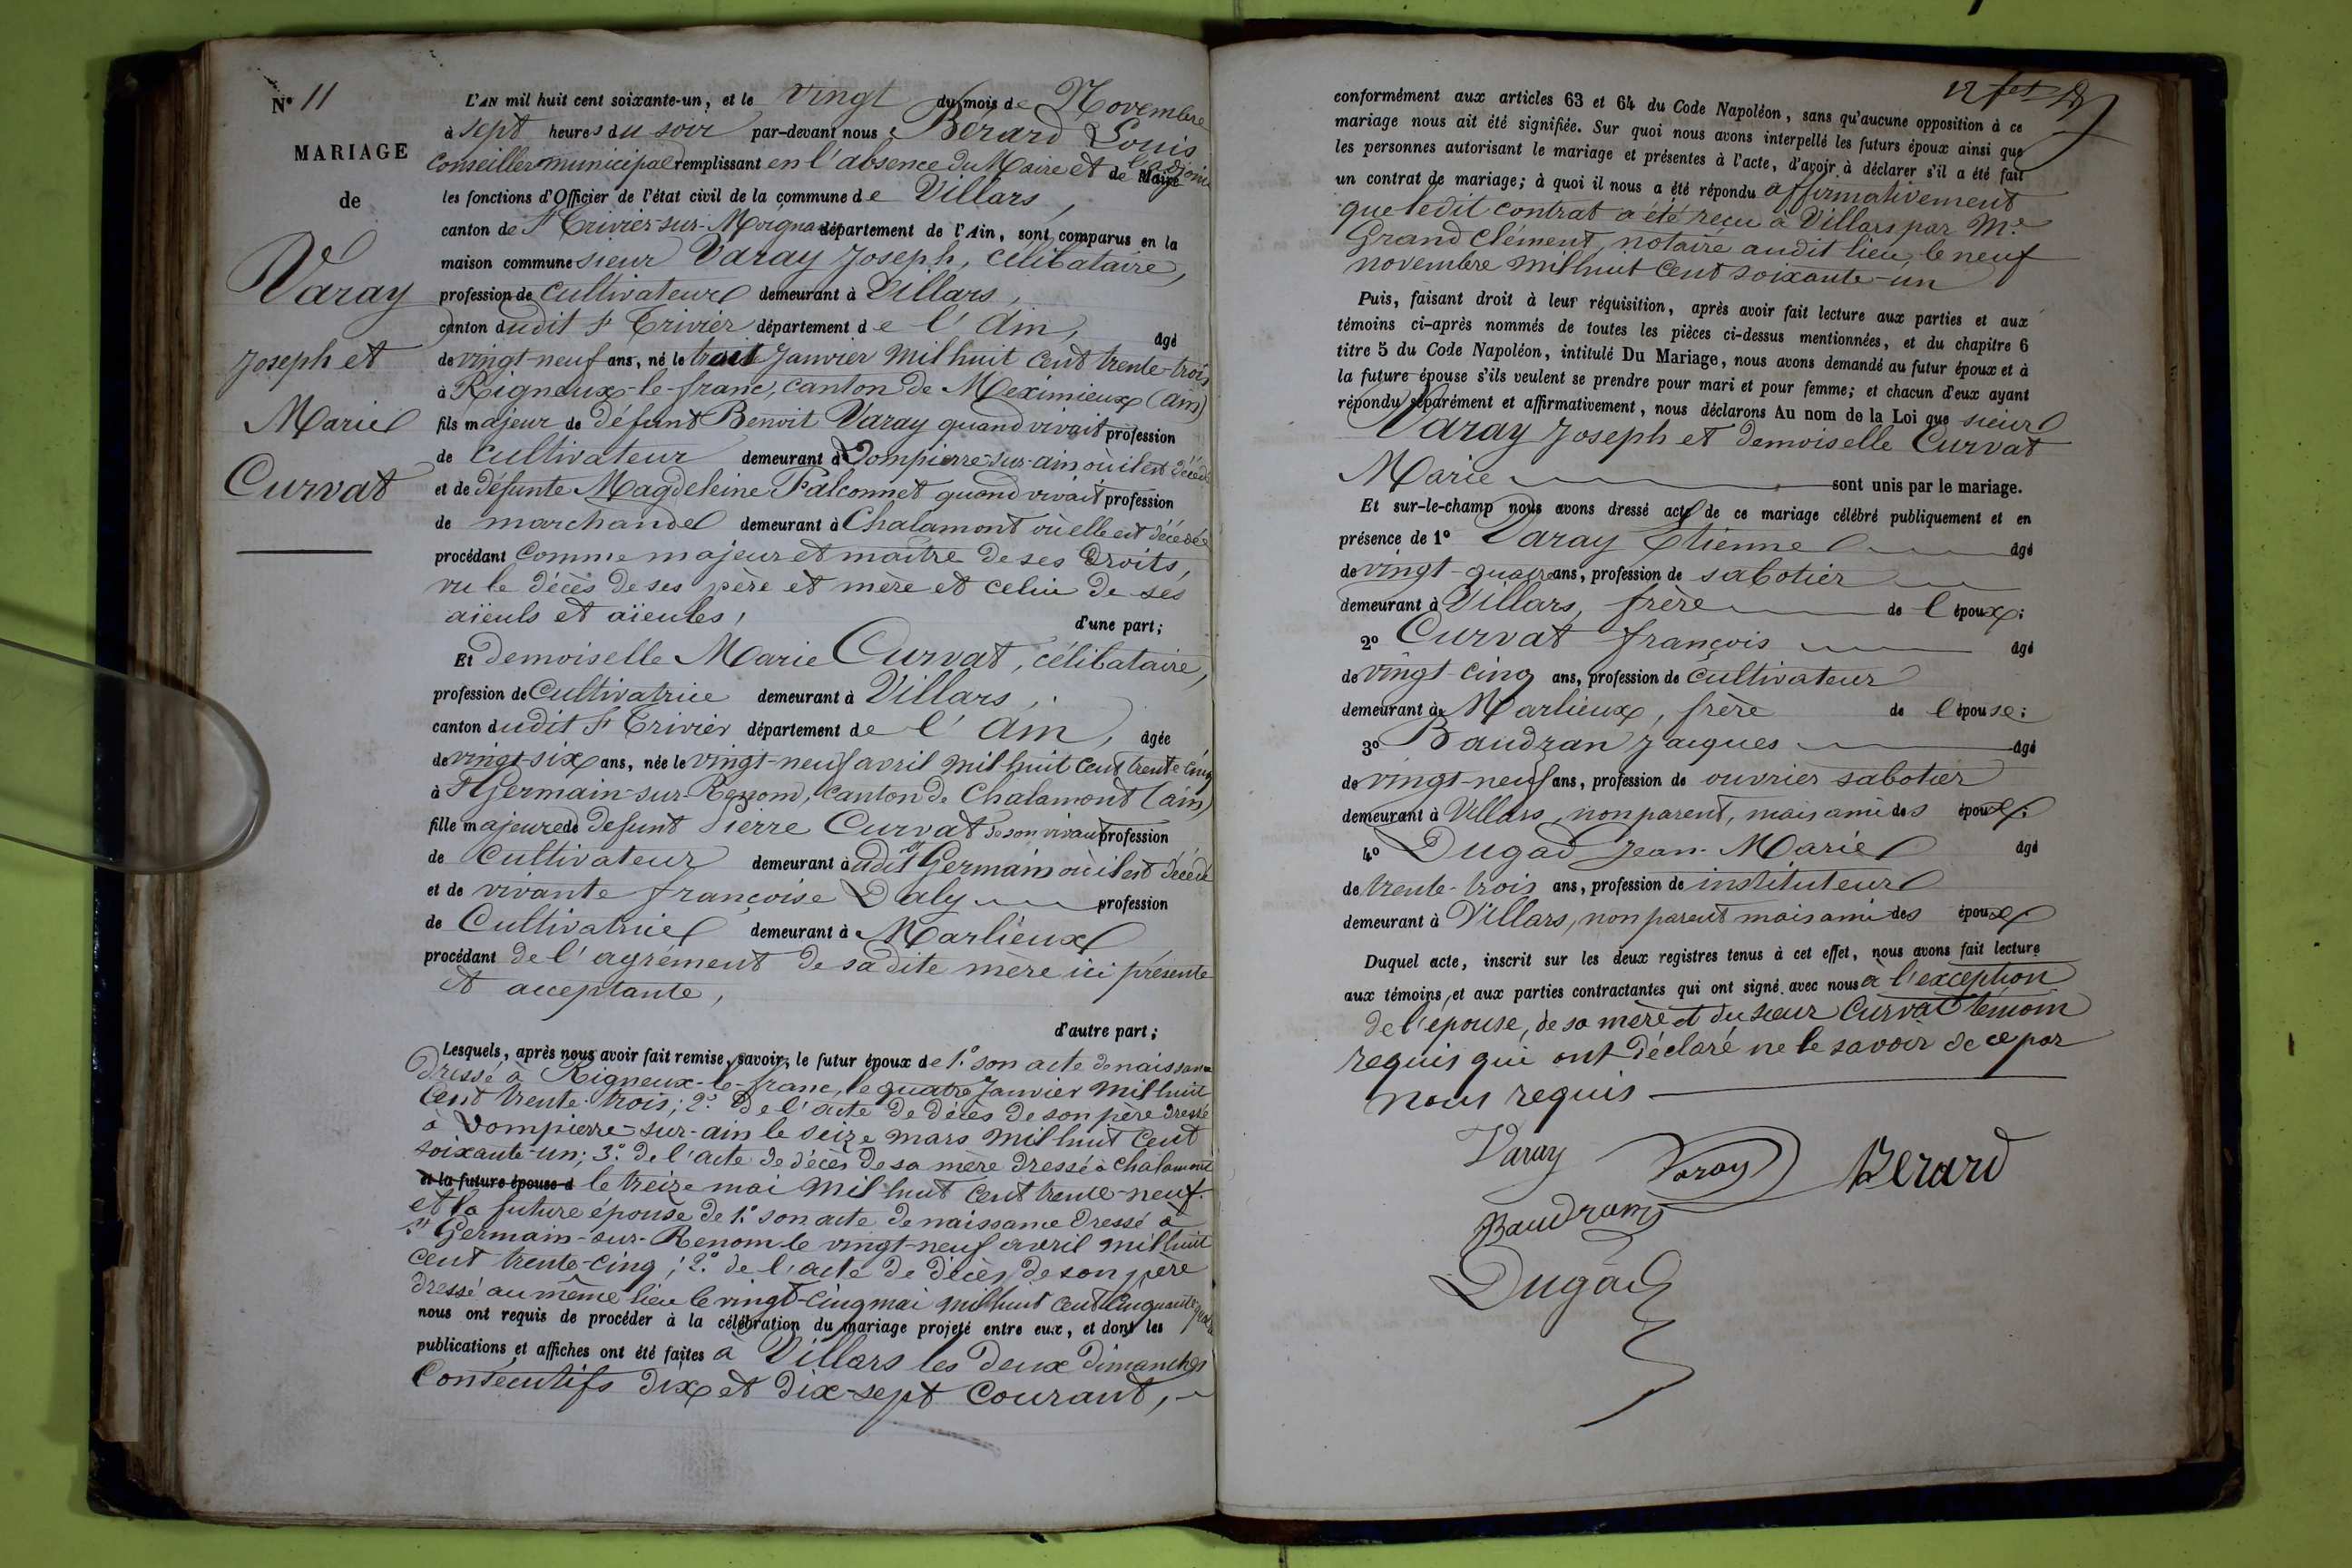 N° 11
MARIAGE
de
Varay
Joseph et
Marie
Curvat
L'AN mil huit cent soixante-un, et le vingt du mois de Novembre
à sept heures du soir par-devant nous Bérard Louis
Conseiller municipal remplissant en l'absence du Maire et de l'adjoint
les fonctions d'Officier de l'état civil de la commune de Villars,
canton de St Trivier-sur-Moignans département de l'Ain, sont comparus en la
maison commune sieur Varay Joseph, célibataire,
profession de cultivateur demeurant à Villars,
canton dudit St Trivier département de l'Ain, âgé
de vingt-neuf ans, né le trois Janvier mil huit cent trente-trois
à Rigneux-le-franc, canton de Meximieux (Ain)
fils majeur de défunt Benoit Varay quand vivait profession
de cultivateur demeurant à Dompierre-sur-ain où il est décédé
et de défunte Magdeleine Falconnet quand vivait profession
de marchande demeurant à Chalamont où elle est décédée
procédant comme majeur et maître de ses droits,
vu le décès de ses père et mère et celui de ses
aïeuls et aïeules, d'une part;
Et demoiselle Marie Curvat, célibataire,
profession de cultivatrice demeurant à Villars,
canton dudit St Trivier département de l'Ain, âgée
de vingt-six ans, née le vingt-neuf avril mil huit cent trente cinq
à St Germain-sur-Renom, canton de Chalamont (ain)
fille majeure de défunt Pierre Curvat de son vivant profession
de cultivateur demeurant à udit St Germain où il est décédé
et de vivante françoise Daly profession
de Cultivatrice demeurant à Marlieux
procédant de l'agrément de sadite mère ici présente
et acceptante,
d'autre part;
Lesquels, après nous avoir fait remise, savoir, le futur époux de 1.° son acte de naissance
dressé à Rigneux-le-franc, le quatre Janvier mil huit
cent trente-trois; 2.° de l'acte de décès de son père dressé
à Dompierre-sur-ain le seize mars mil huit cent
soixante-un; 3.° de l'acte de décès de sa mère dressé à Chalamont
et la future épouse d le treize mai mil huit cent trente-neuf.
et la future épouse de 1.° son acte de naissance dressé à
St Germain-sur-Renom le vingt-neuf avril mil huit
cent trente-cinq; 2.° de l'acte de décès de son père
dressé au même lieu le vingt-cinq mai mil huit cent cinquante
nous ont requis de procéder à la célébration du mariage projeté entre eux, et dont les
publications et affiches ont été faites à Villars les deux dimanches
Consécutifs dix et dix-sept courant,
conformément aux articles 63 et 64 du Code Napoléon, sans qu'aucune opposition à ce
mariage nous ait été signifiée. Sur quoi nous avons interpellé les futurs époux ainsi que
les personnes autorisant le mariage et présentes à l'acte, d'avoir à déclarer s'il a été fait
un contrat de mariage; à quoi il nous a été répondu affirmativement
que ledit contrat a été reçu à Villars par Me
Grand clément, notaire audit lieu, le neuf
novembre mil huit cent soixante-un
Puis, faisant droit à leur réquisition, après avoir fait lecture aux parties et aux
témoins ci-après nommés de toutes les pièces ci-dessus mentionnées, et du chapitre 6
titre 5 du Code Napoléon, intitulé Du Mariage, nous avons demandé au futur époux et à
la future épouse s'ils veulent se prendre pour mari et pour femme; et chacun d'eux ayant
répondu séparément et affirmativement, nous déclarons Au nom de la Loi que sieur
Varay Joseph et demoiselle Curvat
Marie sont unis par le mariage.
Et sur-le-champ nous avons dressé acte de ce mariage célébré publiquement et en
présence de 1° Varay Etienne âgé
de vingt-quatre ans, profession de sabotier
demeurant à Villars, frère de l'époux;
2° Curvat françois âgé
de vingt-cinq ans, profession de cultivateur
demeurant à Marlieux, frère de l'épouse;
3° Baudran Jacques âgé
de vingt-neuf ans, profession de ouvrier sabotier
demeurant à Villars, non parent, mais ami des époux;
4° Dugad Jean-Marie âgé
de trente-trois ans, profession de instituteur
demeurant à Villars, non parent mais ami des époux
Duquel acte, inscrit sur les deux registres tenus à cet effet, nous avons fait lecture
aux témoins, et aux parties contractantes qui ont signé avec nous à l'exception
de l'épouse, de sa mère et du sieur Curvat témoin
requis qui ont déclaré ne le savoir de ce par
nous requis
Varay Varay Bérard
Baudran
Dugad